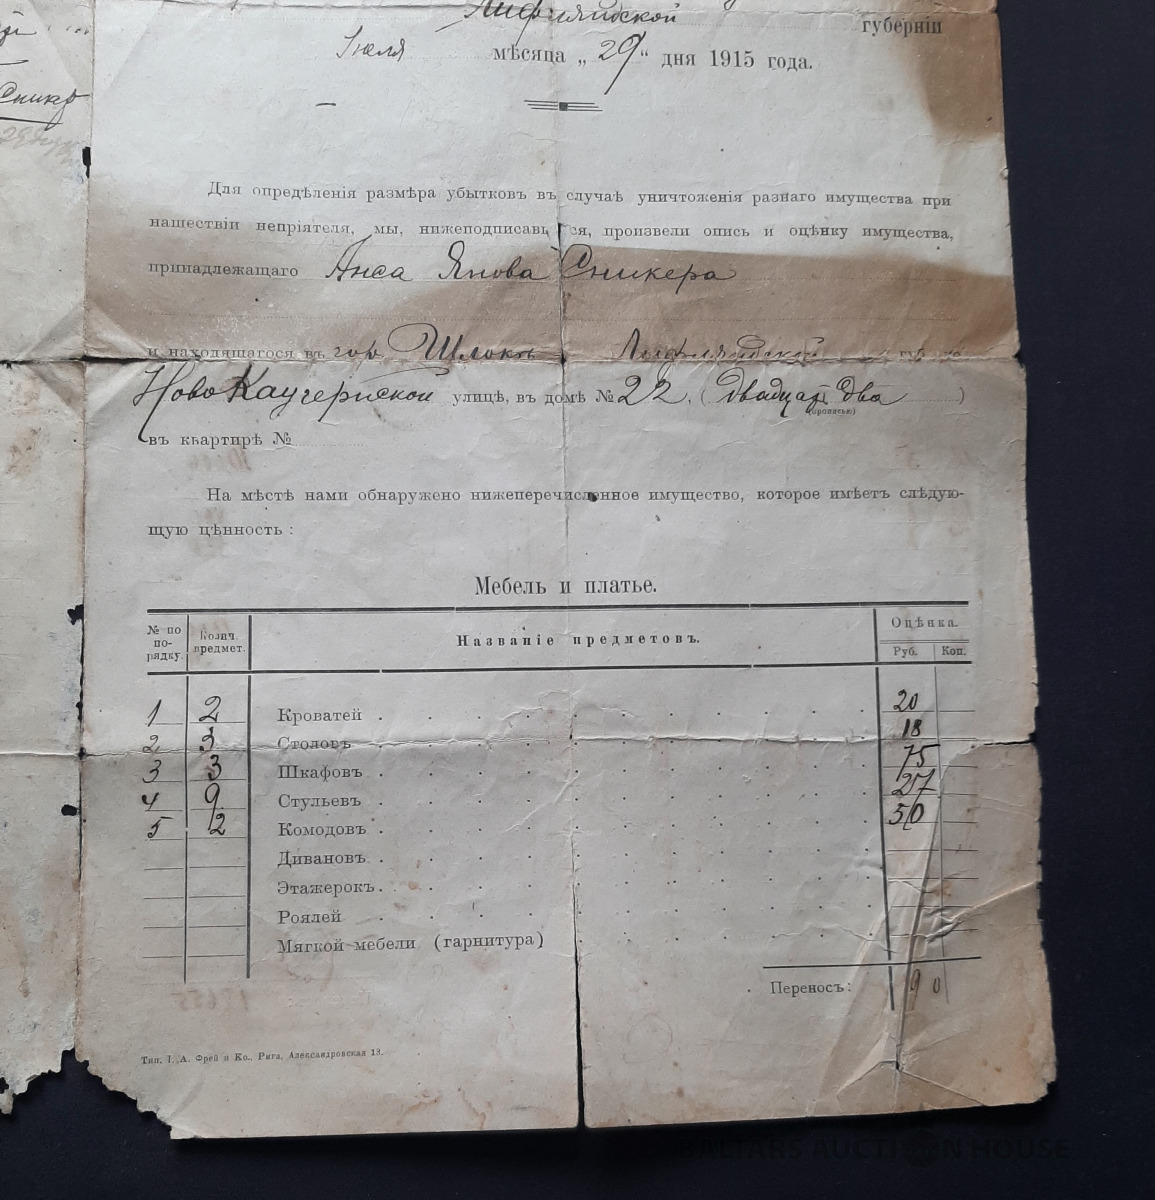 Лифляндской губерніи
Іюля мѣсяца „ 29 “ дня 1915 года.
Сникер
Для опредѣленія размѣра убытковъ въ случаѣ уничтоженія разнаго имущества при
нашествіи непріятеля, мы, нижеподписавшіяся, произвели опись и оцѣнку имущества,
принадлежащаго Анса Янова Сникера
и находящагося въ гор Шлокъ Лифляндской губ
Ново Каугернской улицѣ, въ домѣ № 22, (двадцать два)
(прописью)
въ квартирѣ №
На мѣстѣ нами обнаружено нижеперечисленное имущество, которое имѣетъ слѣдую-
щую цѣнность :
Мебель и платье.
№ по по- рядку. Колич. предмет. Названіе предметовъ. Оцѣнка.
Руб. Коп.
1 2 Кроватей 20
2 3 Столовъ 18
3 3 Шкафовъ 75
4 9 Стульевъ 27
5 2 Комодовъ 50
Дивановъ
Этажерокъ
Роялей
Мягкой мебели (гарнитура)
Переносъ: 90
Тип. І. А. Фрей и Ко., Рига, Александровская 13.
BALTARS AUCTION HOUSE